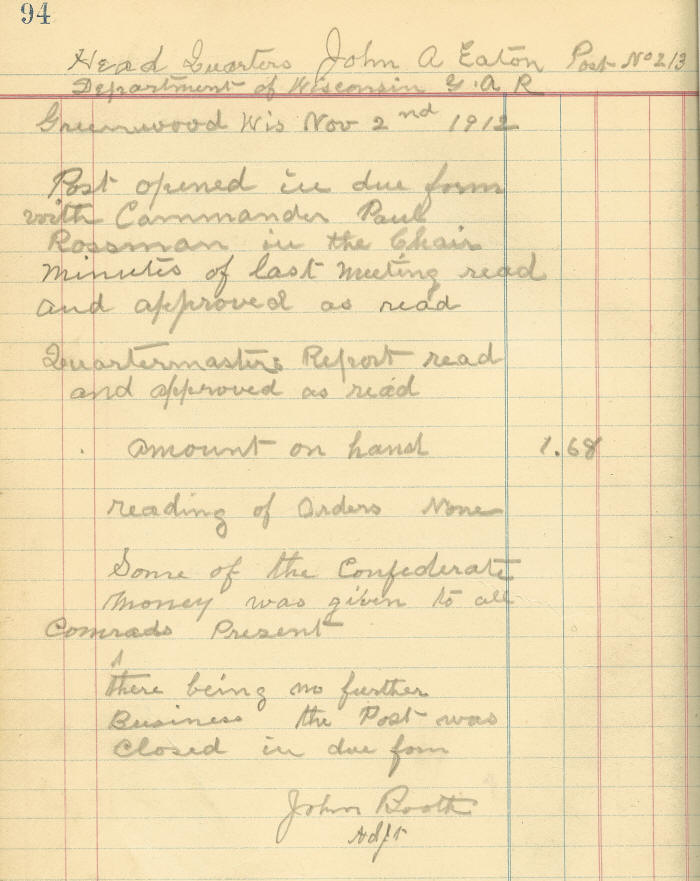 94
Head Quarters John A Eaton Post No 213
Department of Wisconsin G. A R
Greenwood Wis Nov 2nd 1912
Post opened in due form
with Commander Paul
Rossman in the Chair
Minutes of last Meeting read
and approved as read
Quartermasters Report read
and approved as read
amount on hand 1.68
reading of Orders None
Some of the Confederate
Money was given to all
Comrads Present
there being no further
Business the Post was
Closed in due form
John Booth
Adjt